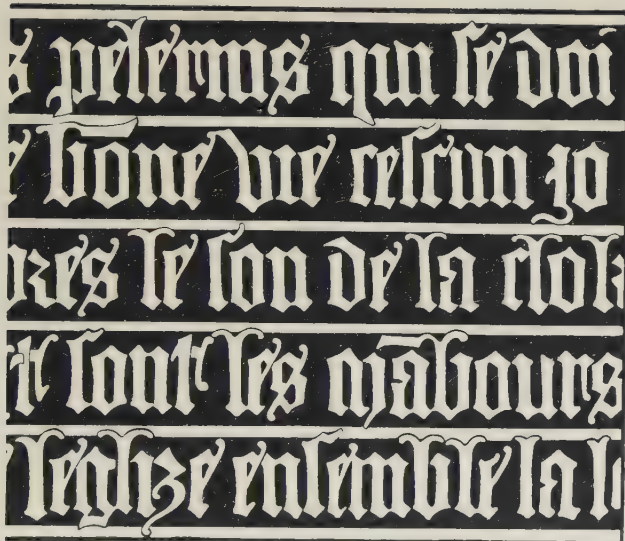 s pelerins qui se doi
e bone vie cescun jo
res le son de la clok
t sont les mābours
e leglize ensemble la l